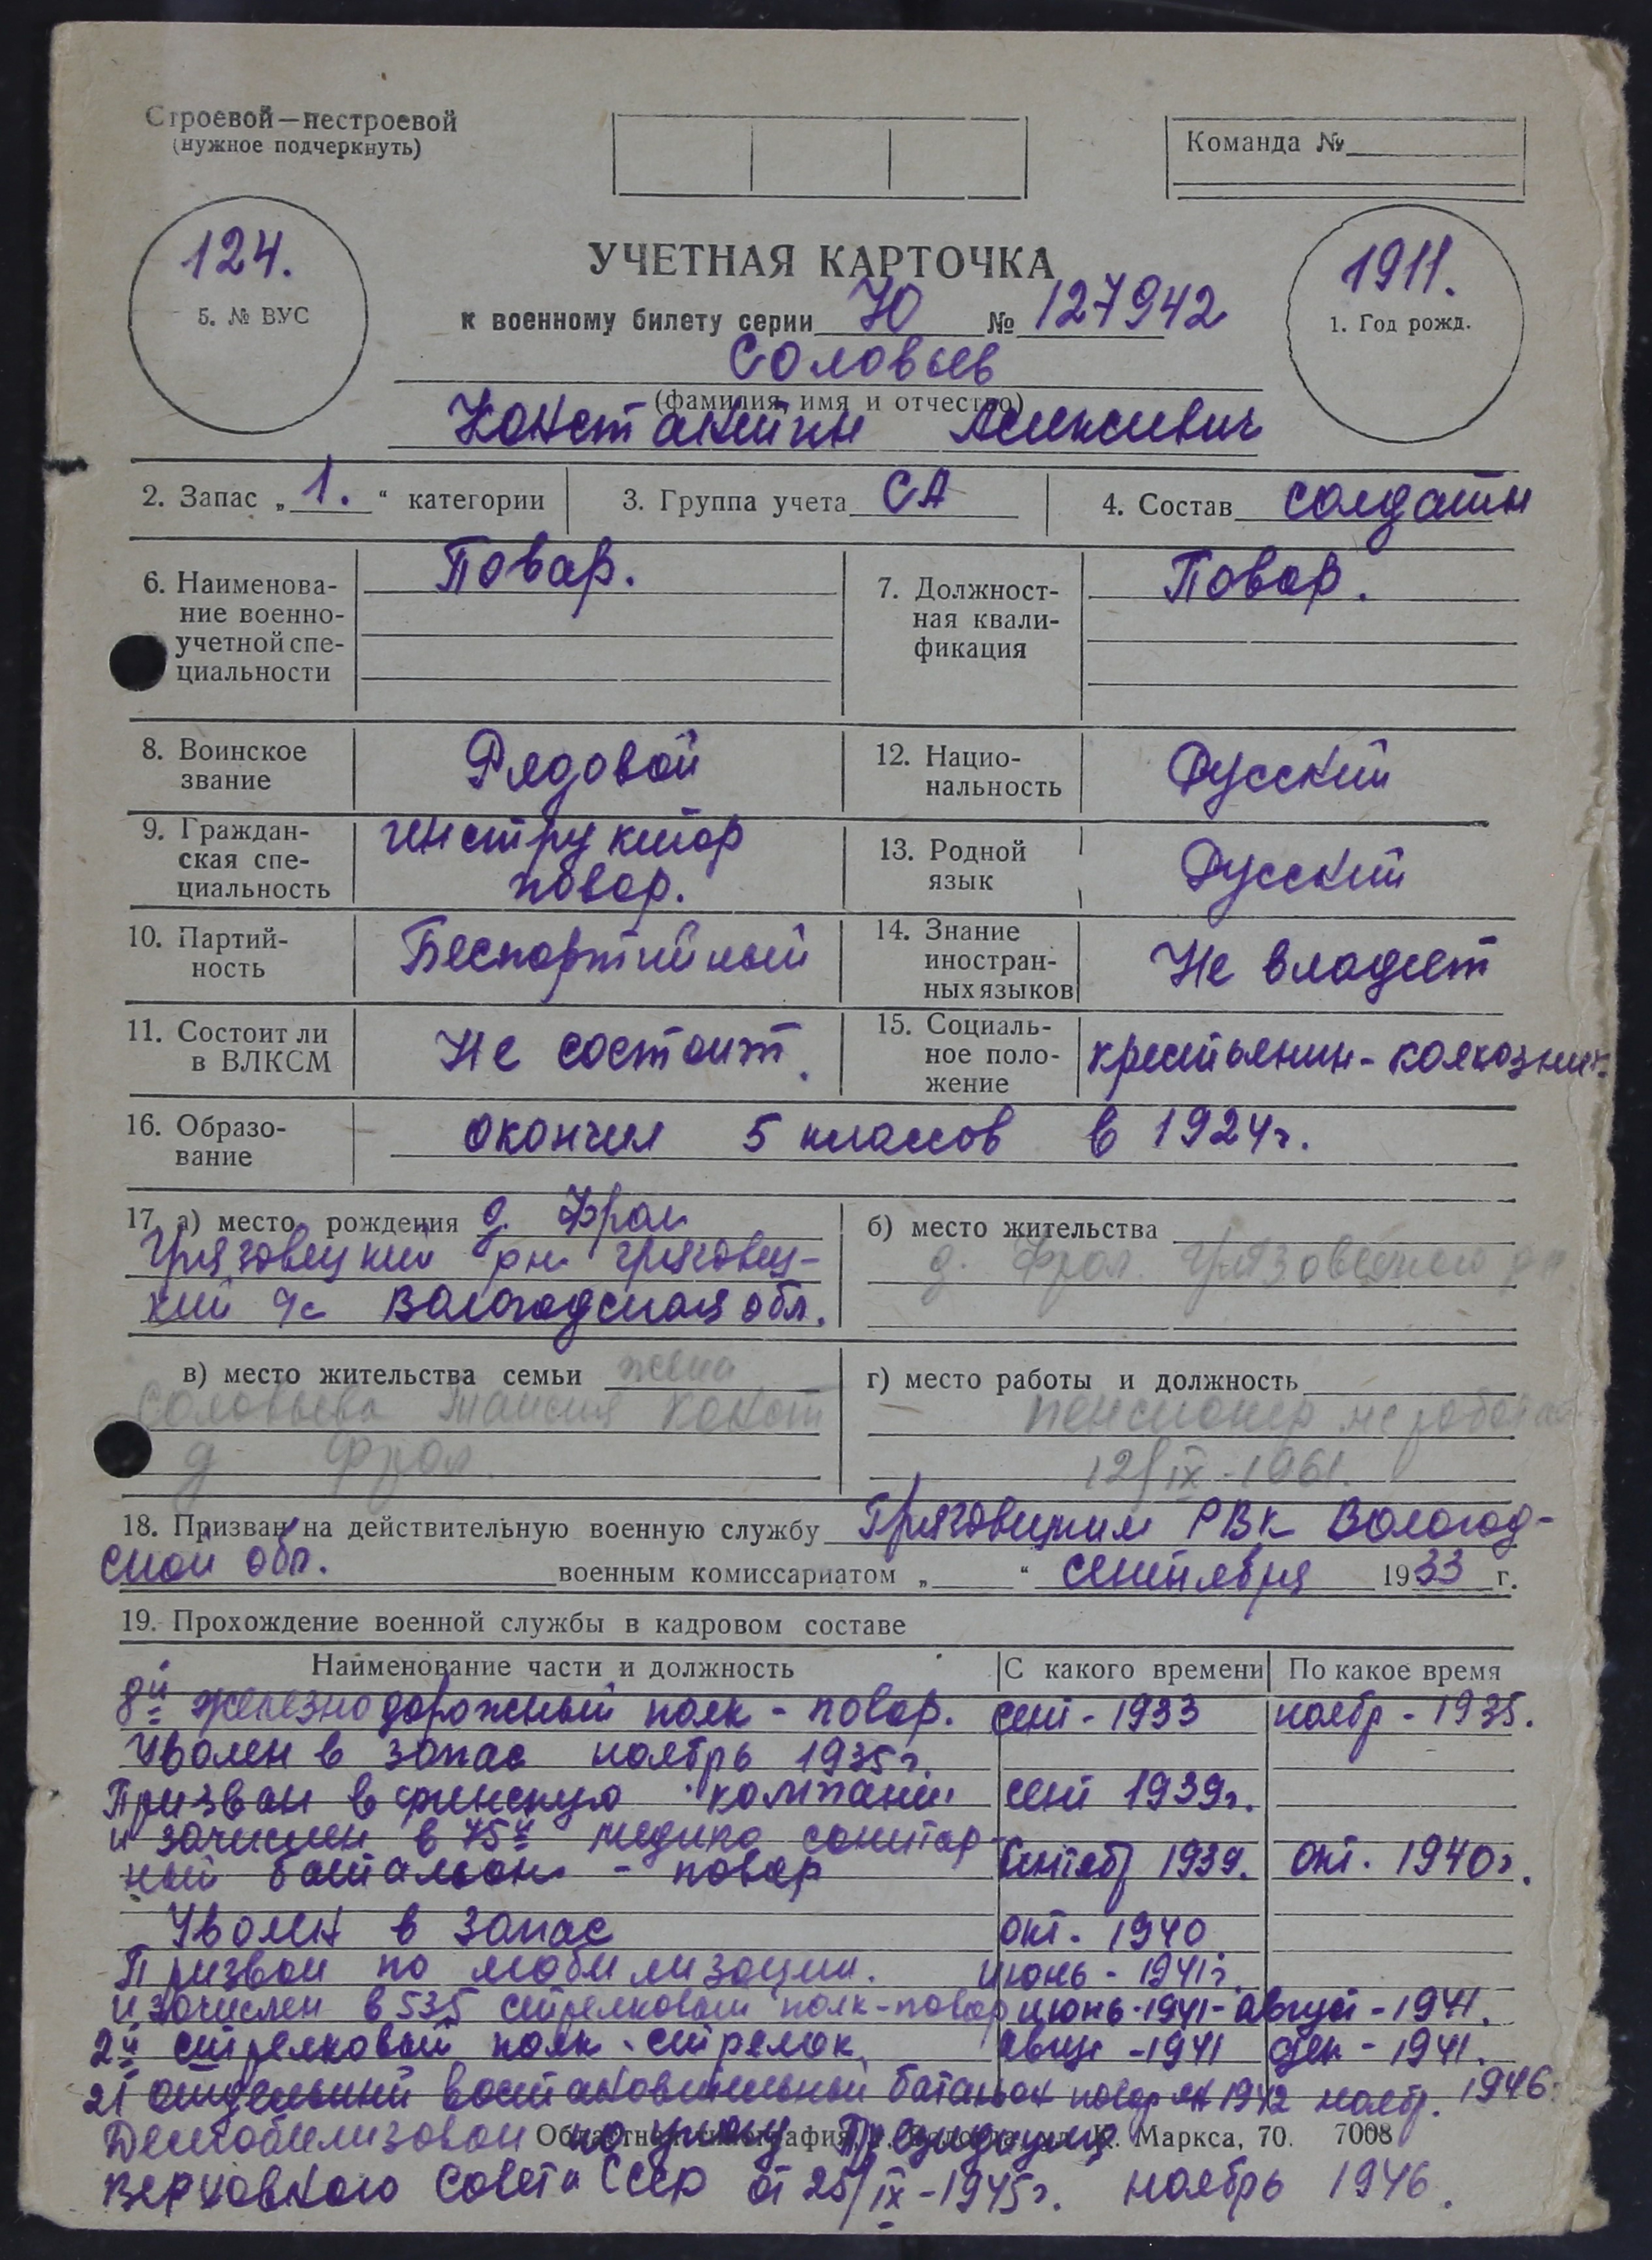 Строевой—нестроевой
(нужное подчеркнуть)
Команда №
124.
5. № ВУС
УЧЕТНАЯ КАРТОЧКА
к военному билету серии Ю № 127942
1911.
1. Год рожд.
Соловьев
(фамилия, имя и отчество)
Константин Алексеевич
2. Запас „1.“ категории
3. Группа учета СА
4. Состав солдаты
6. Наименова-
ние военно-
учетной спе-
циальности
Повар.
7. Должност-
ная квали-
фикация
Повар.
8. Воинское
звание
Рядовой
12. Нацио-
нальность
Русский
9. Граждан-
ская спе-
циальность
инструктор
повар.
13. Родной
язык
Русский
10. Партий-
ность
Беспартийный
14. Знание
иностран-
ных языков
Не владеет
11. Состоит ли
в ВЛКСМ
Не состоит.
15. Социаль-
ное поло-
жение
крестьянин-колхозник.
16. Образо-
вание
окончил 5 классов в 1924г.
17. а) место рождения д. Фрол
Грязовецкий р-н грязовец-
кий с/с Вологодская обл.
б) место жительства
д. Фрол. Грязовецкого р-н
в) место жительства семьи жена
Соловьева Таисия Конст
д Фрол.
г) место работы и должность
пенсионер не работа
12/IX-1961.
18. Призван на действительную военную службу Грязовецким РВК Вологод-
ской обл. военным комиссариатом „ “ сентября 1933 г.
19. Прохождение военной службы в кадровом составе
Наименование части и должность С какого времени По какое время
8й железнодорожный полк - повар. сент - 1933 ноябр - 1935.
Уволен в запас ноябрь 1935г.
Призван в финскую компанию сент 1939г.
и зачислен в 75й медико санитар-
ный батальон - повар сентябр 1939. окт. 1940г.
Уволен в запас окт. 1940
Призван по мобилизации. июнь - 1941г.
и зачислен в 535 стрелковый полк-повар июнь-1941- август - 1941.
2й стрелковый полк - стрелок. август - 1941 дек - 1941.
21 отдельный востановительный батальон повар ян 1942 ноябр. 1946.
Областная типография, г. Вологда, ул. К. Маркса, 70. 7008
Демобилизован по указу Президиума
Верховного Совета СССР от 25/IX-1945г. ноябрь 1946.